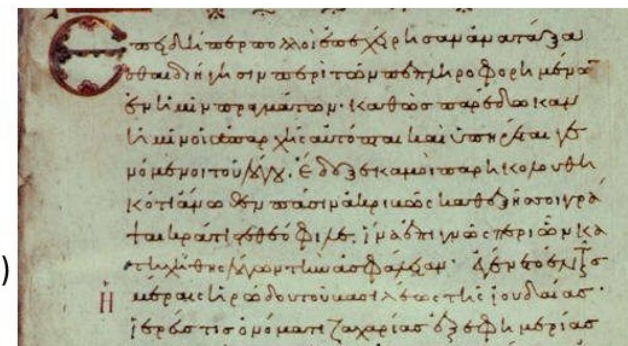 Ἐπειδήπερ πολλοὶ ἐπεχείρησαν ἀνατάξα
σθαι διήγησιν περὶ τῶν πεπληροφορημένων
ἐν ἡμῖν πραγμάτων· καθὼς παρέδωκαν
ἡμῖν οἱ ἀπαρχῆς αὐτόπται καὶ ὑπηρέται γε
νόμενοι τοῦ λόγου. ἔδοξε κἀμοὶ παρηκολουθη
κότι ἄνωθεν πᾶσιν ἀκριβῶς καθεξῆς σοι γρά
ψαι κράτιστε θεόφιλε. ἵνα ἐπιγνῷς περὶ ὧν κα
)
τηχήθης λόγων τὴν ἀσφάλειαν· ἐγένετο ἐν ταῖς
ἡμέραις ἡρώδου τοῦ βασιλέως τῆς ἰουδαίας·
ἱερεύς τις ὀνόματι ζαχαρίας ἐξ ἐφημερίας